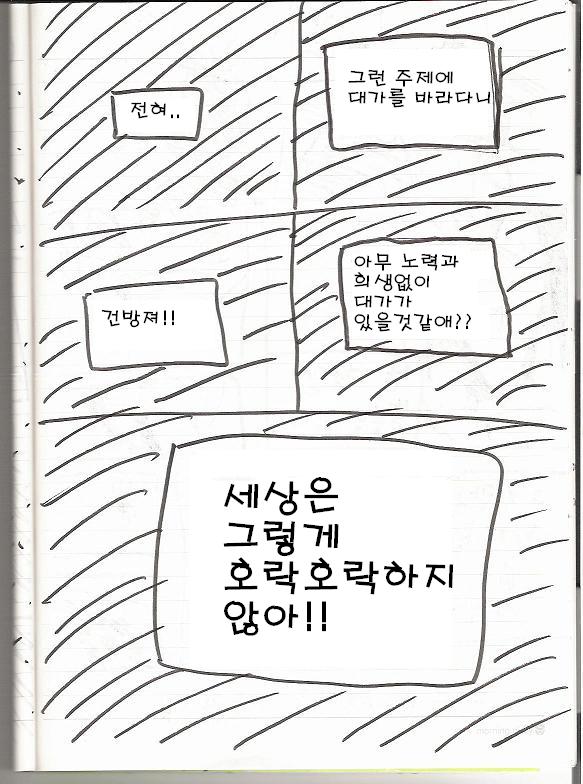 전혀..
그런 주제에
대가를 바라다니
건방져!!
아무 노력과
희생없이
대가가
있을것같애??
세상은
그렇게
호락호락하지
않아!!